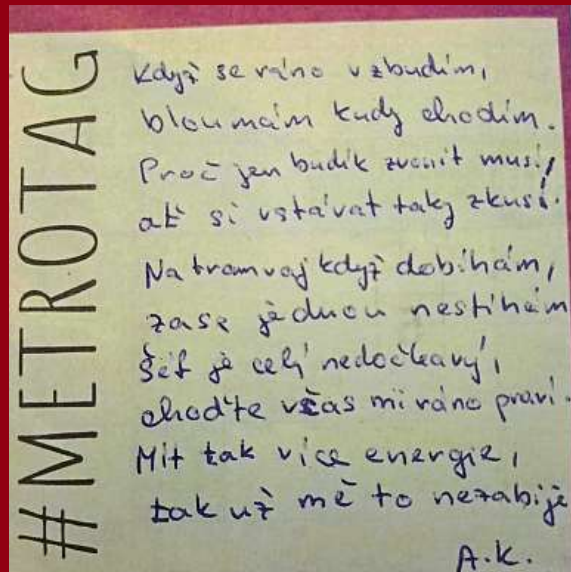 #METROTAG
Když se ráno vzbudím,
bloumám kudy chodím.
Proč jen budík zvonit musí,
ať si vstávat taky zkusí.
Na tramvaj když dobíhám,
zase jednou nestíhám
Šéf je celý nedočkavý,
choďte včas mi ráno praví.
Mít tak více energie,
tak už mě to nezabije
A.K.